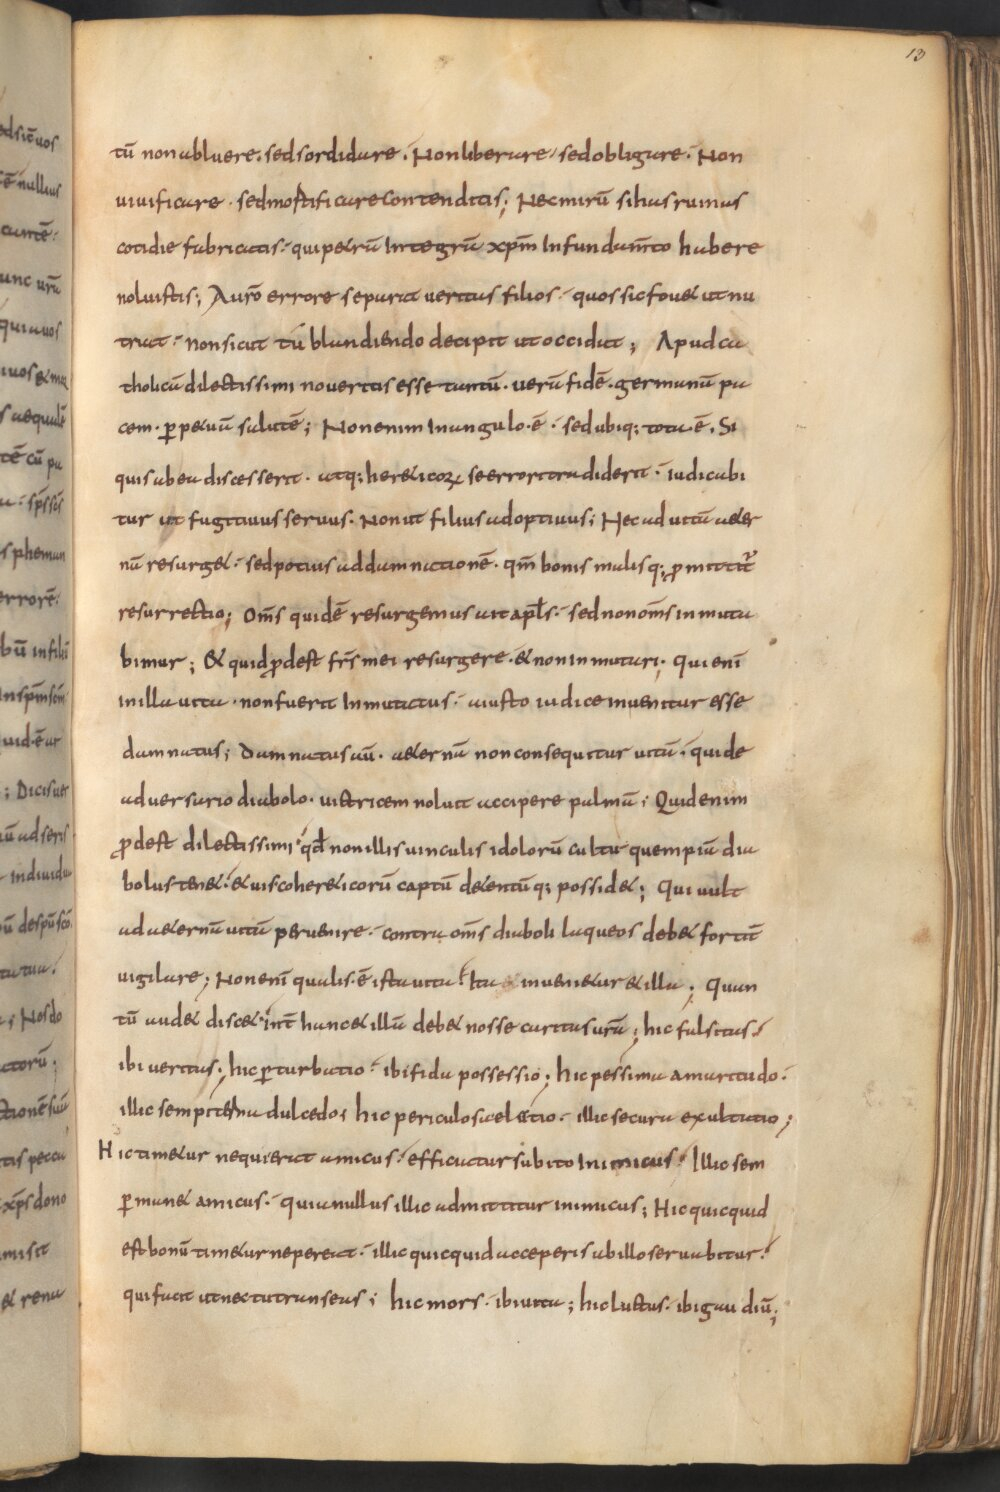 13
tū non abluere. sed sordidare. Non liberare sed obligare. Non
uiuificare. sed mortificare contenditis; Nec mirū si has ruinas
cotidie fabricatis. qui petrū Integrū xp̄m In fundam̄to habere
noluistis; Auro errore separat ueritas filios. quos sic fouet ut nu
triat. non sicut tū blandiendo decipit ut occidat; Apud ca
tholicā dilectissimi noueritis esse tantū. uerā fidē. germanā pa
cem. ꝑpetuā salutē; Non enim In angulo. ē. sed ubiq; tota. ē. Si
quis ab ea discesserit. atq; hereticoꝝ se errori tradiderit. iudicabi
tur ut fugitiuus seruus. Non ut filius adoptiuus; Nec ad uitā aeter
nā resurget. sed potius ad damnationē. qm̄ bonis malisq; ꝓmittitr̄
resurrectio; Om̄s quidē resurgemus ut apl̄s. sed non om̄s inmuta
bimur; Et quid ꝓdest fr̄s mei resurgere. et non inmutari. Qui eni
in illa uita. non fuerit Inmutatus. a iusto iudice inuenitur esse
damnatus; Damnatus aū. aeternā non consequitur uitā. qui de
aduersario diabolo. uictricem noluit accipere palmā; Quid enim
ꝓdest dilectissimi qđ non illis uinculis idolorū cultu quempiā dia
bolus tenet. et uisco hereticorū captū detentūq; possidet; Qui uult
ad aeternā uitā peruenire. contra om̄s diaboli laqueos debet fortit̄
uigilare; Non eni qualis. ē ista uita. Ita inuenietur et illa; Quan
tū audet discet int̄ hanc et illā debet nosse caritas urā; hic falsitas.
ibi ueritas; hic ꝑturbatio. ibi fida possessio; hic pessima amaritudo.
illic sempiterna dulcedo; hic periculosa elatio. illic secura exultatio;
Hic timetur ne qui erat amicus. efficiatur subito Inimicus. Illic sem
ꝑ manet amicus. quia nullus illic admittitur inimicus; Hic quicquid
est bonū timetur ne pereat. illic quicquid acceperis ab illo seruabitur.
qui facit ut nec tu transeas; hic mors. ibi uita; hic luctus. ibi gaudiū;